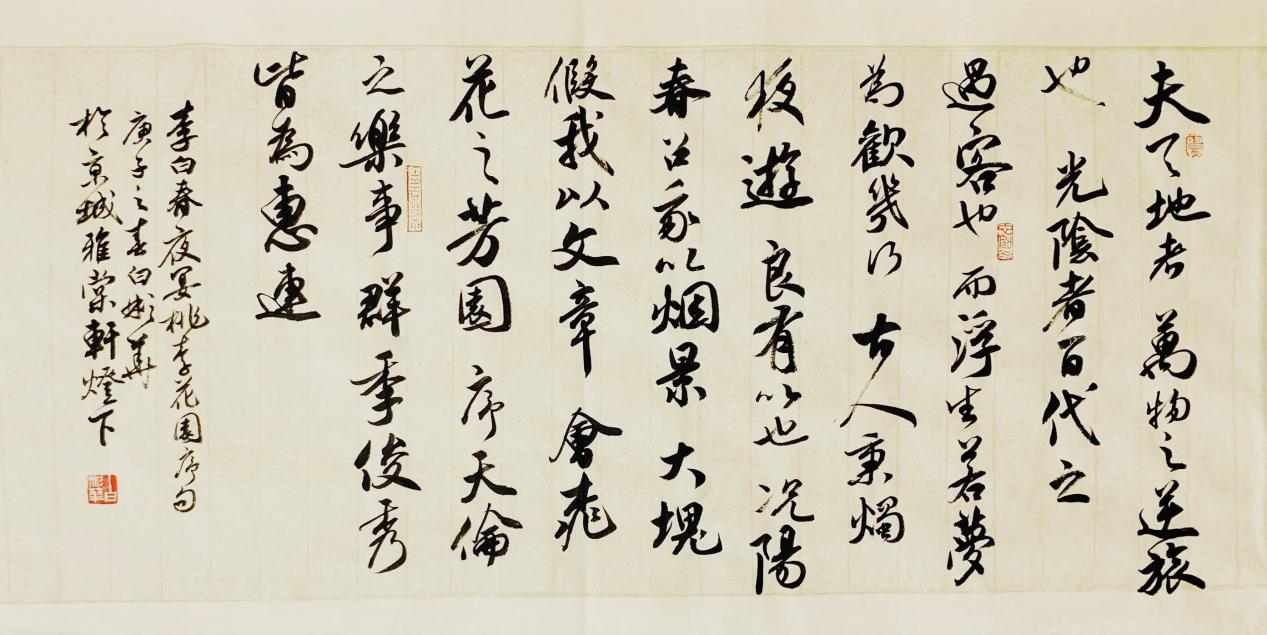 夫天地者萬物之逆旅
也光陰者百代之
過客也而浮生若夢
為歡幾何古人秉燭
夜遊良有以也况陽
春召我以烟景大塊
假我以文章會桃
花之芳園序天倫
之樂事群季俊秀
皆為惠連
李白春夜宴桃李花園序句
庚子之春白彬華
於京城雅棠軒燈下